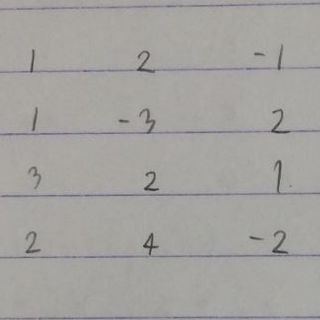 1 2 -1
1 -3 2
3 2 1
2 4 -2